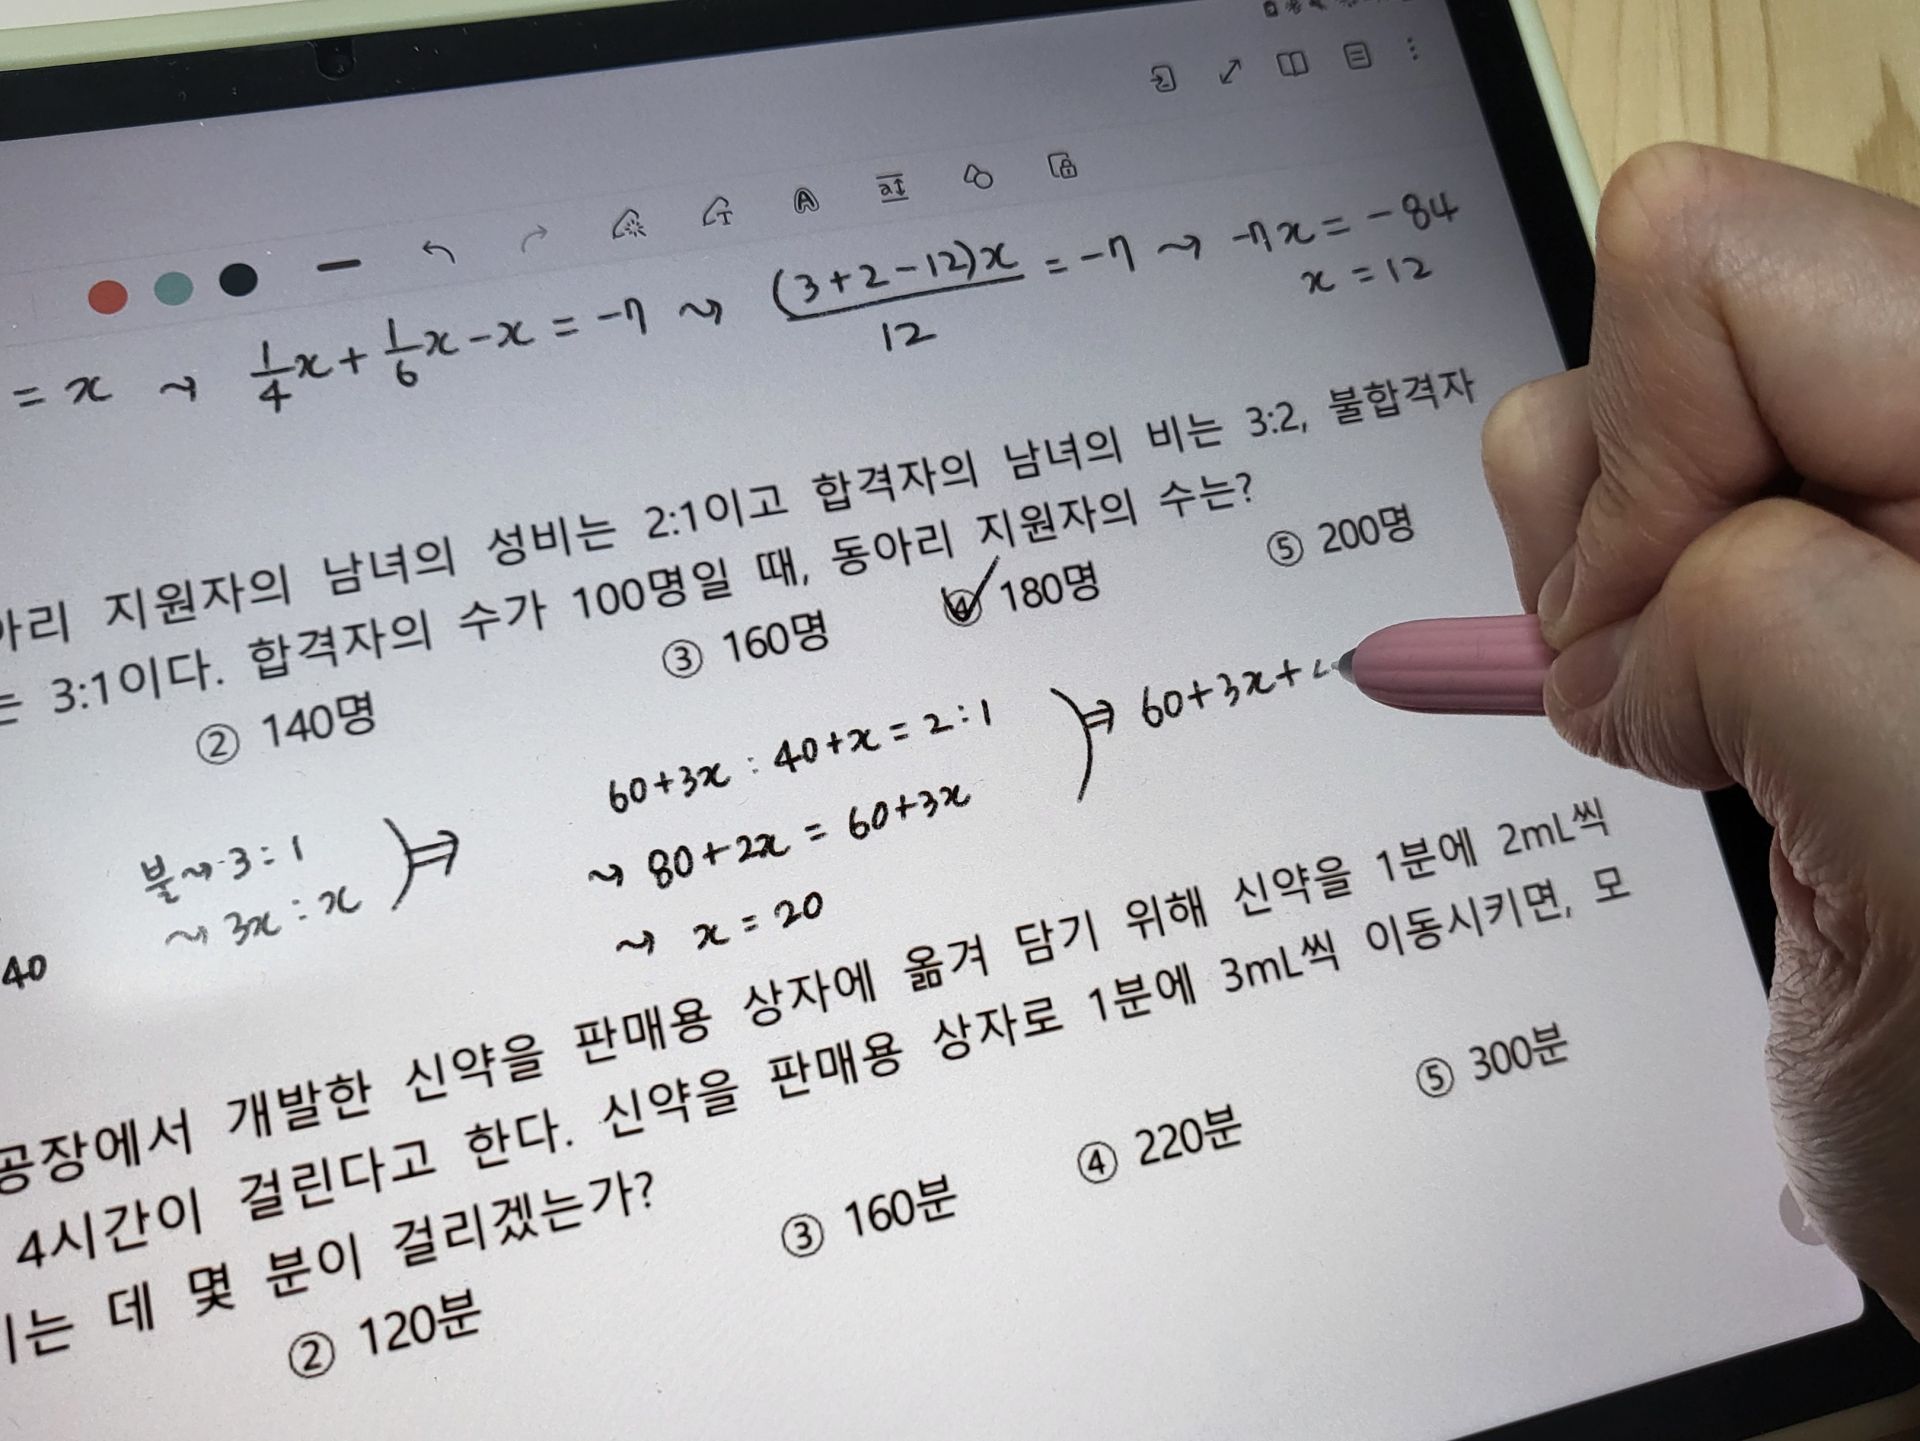 = x ⇝ 1/4x + 1/6x - x = -7 ⇝ (3+2-12)x/12 = -7 ⇝ -7x = -84
x = 12
지원자의 남녀의 성비는 2:1이고 합격자의 남녀의 비는 3:2, 불합격자
3:1이다. 합격자의 수가 100명일 때, 동아리 지원자의 수는?
② 140명 ③ 160명 ④ 180명 ⑤ 200명
불⇝ 3:1
⇝ 3x : x
40
⇒
60+3x : 40+x = 2:1
⇝ 80+2x = 60+3x
⇝ x = 20
⇒ 60+3x+
공장에서 개발한 신약을 판매용 상자에 옮겨 담기 위해 신약을 1분에 2mL씩
4시간이 걸린다고 한다. 신약을 판매용 상자로 1분에 3mL씩 이동시키면, 모
는 데 몇 분이 걸리겠는가?
② 120분 ③ 160분 ④ 220분 ⑤ 300분